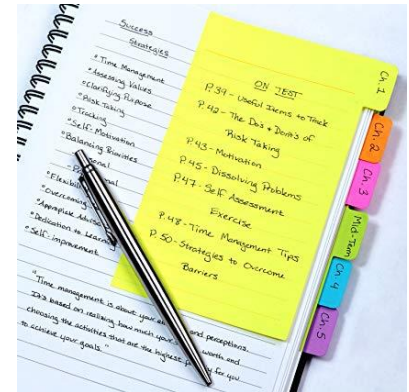 Success
Strategies
"Time Management
"Assessing Values
"Clarifying Purpose
"Risk Taking
"Tracking
"Self-Motivation
"Balancing Priorities
"Flexibil
"Overcoming
"Appropriate Advise
"Dedication to Learn
"Self-improvement
"Time management is about your and perceptions.
It's based on realizing how much your worth and
choosing the activities that are the highest for you
to achieve your goals."
ON TEST
P.39 - Useful Items to Track
P.42 - The Do's + Dont's of
Risk Taking
P.43 - Motivation
P.45 - Dissolving Problems
P.47 - Self Assessment
Exercise
P.48 - Time Management Tips
P.50 - Strategies to Overcome
Barriers
Ch.1
Ch.2
Ch.3
Mid-Term
Ch.4
Ch.5